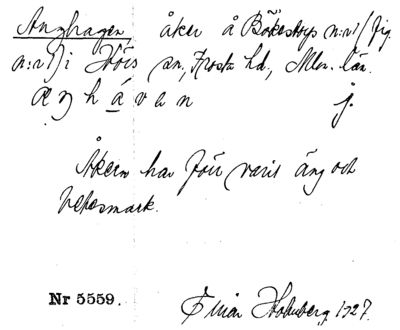 Änghagen åker å Bökestorps n:r1 (fig.
n:r1) i Hörs sn, Frosta hd., Mlm. län.
æŋhávan j.
Åkern har förr varit äng och
betesmark.
Nr 5559. Einar Holmberg 1927.